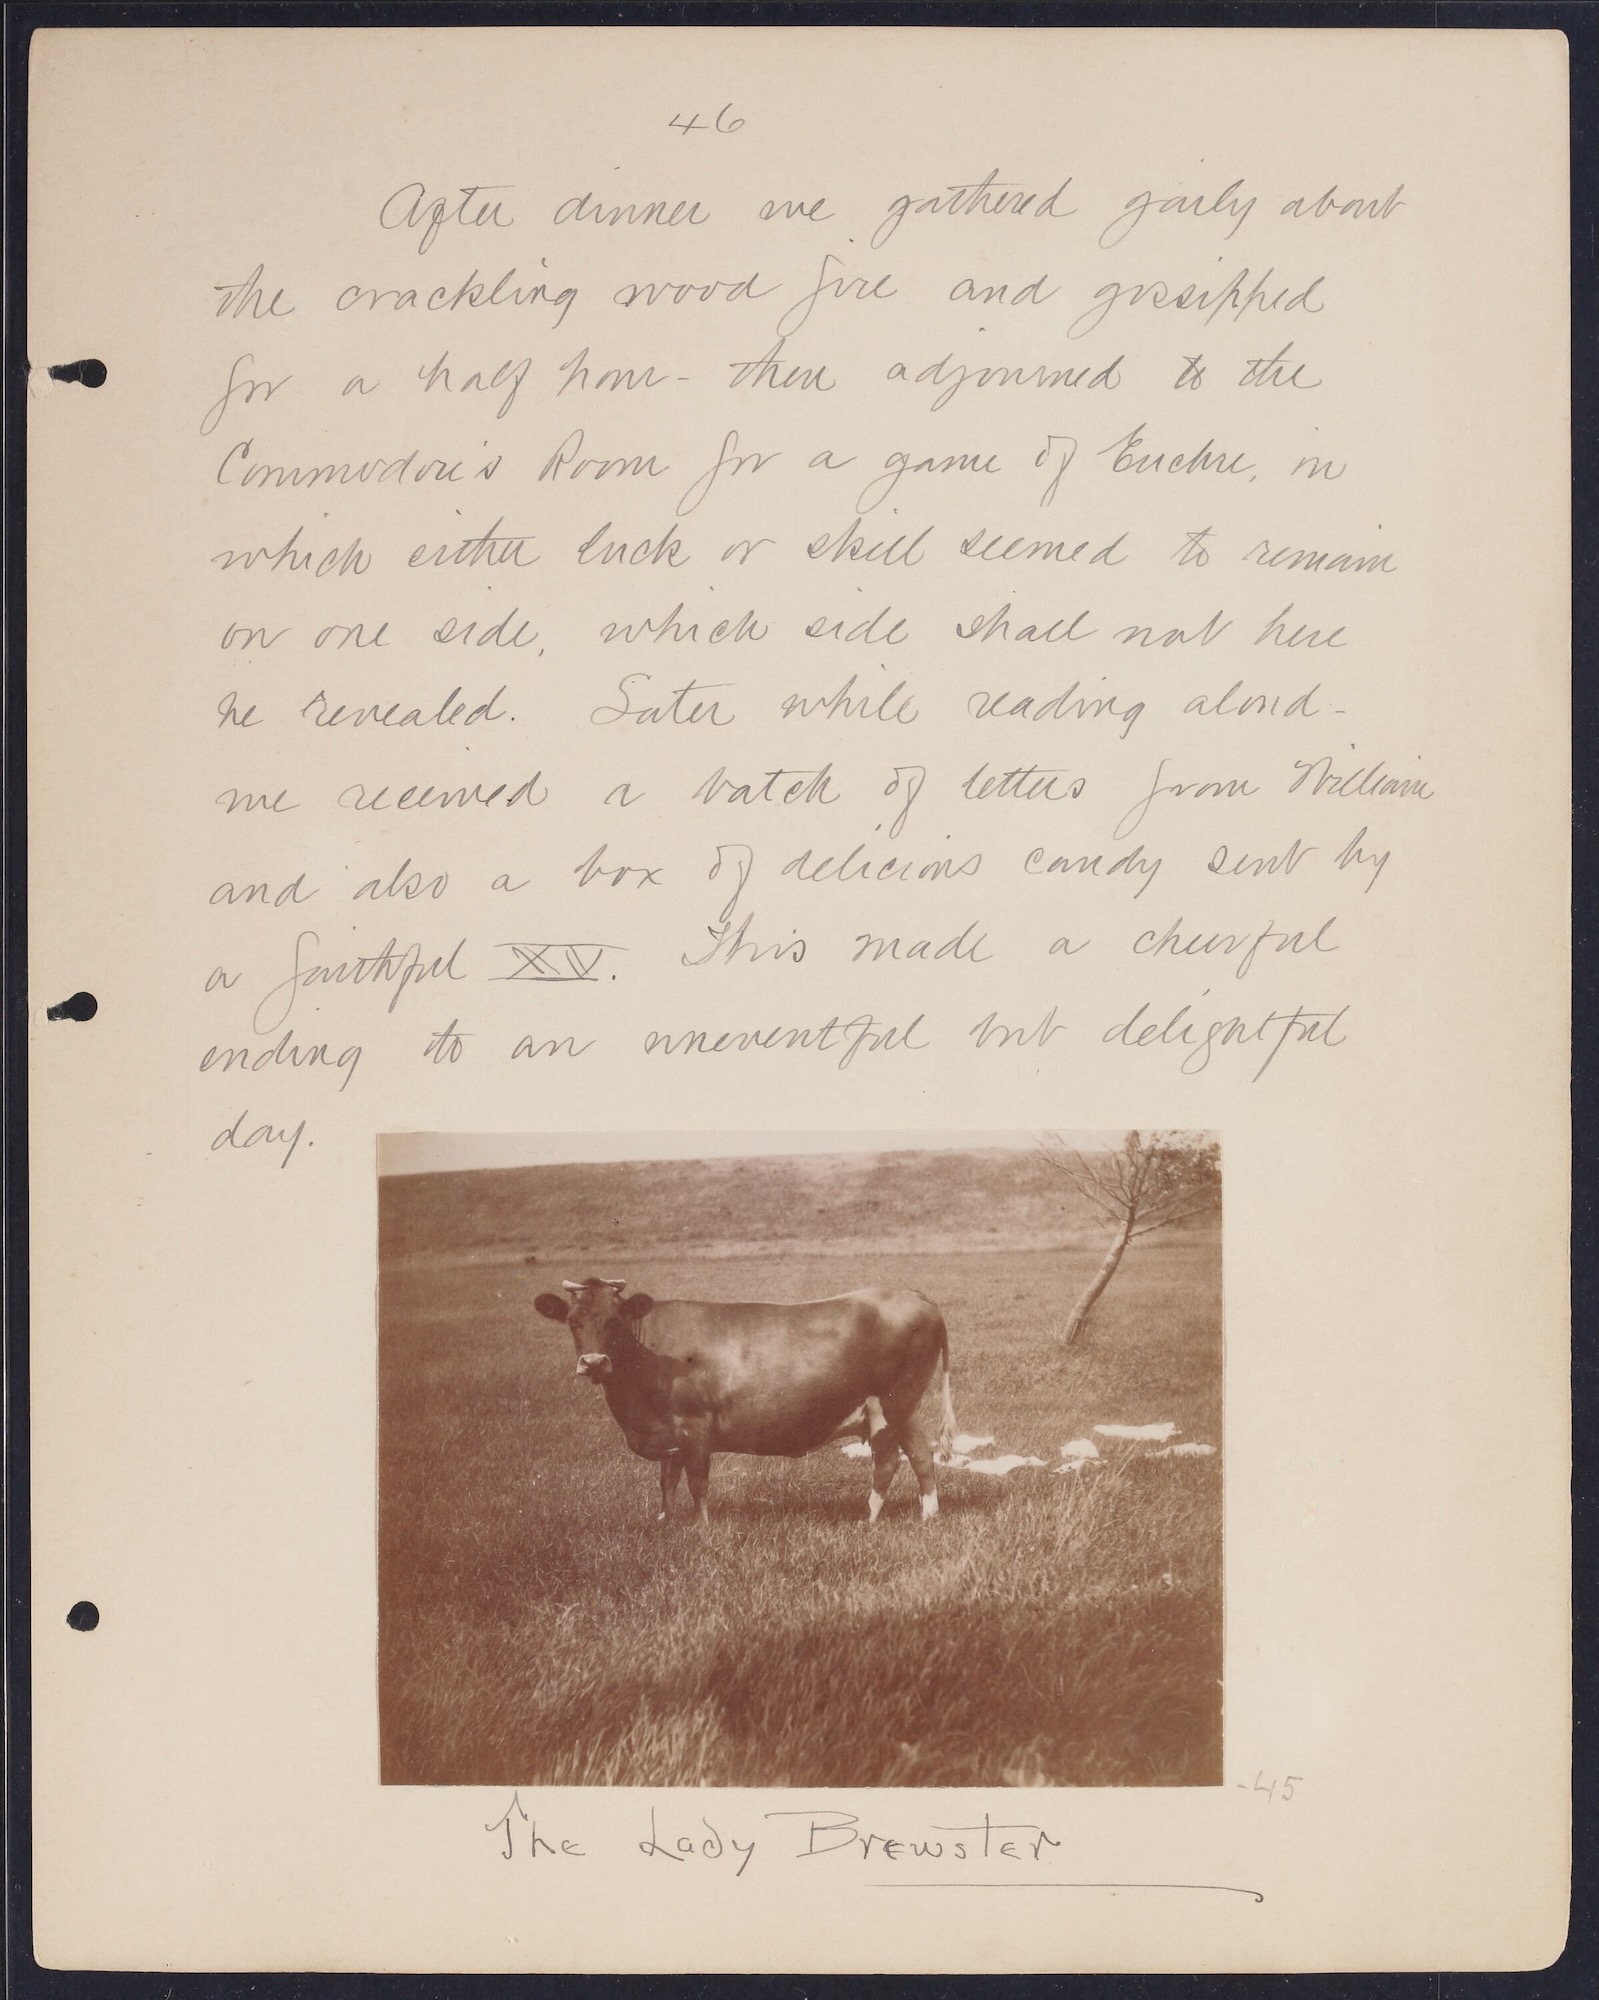 46
After dinner we gathered gaily about
the crackling wood fire and gossipped
for a half hour - then adjourned to the
Commodore's Room for a game of Euchre, in
which either luck or skill seemed to remain
on one side, which side shall not here
be revealed. Later while reading aloud -
we received a batch of letters from William
and also a box of delicious candy sent by
a faithful XV. This made a cheerful
ending to an uneventful but delightful
day.
-45
The Lady Brewster